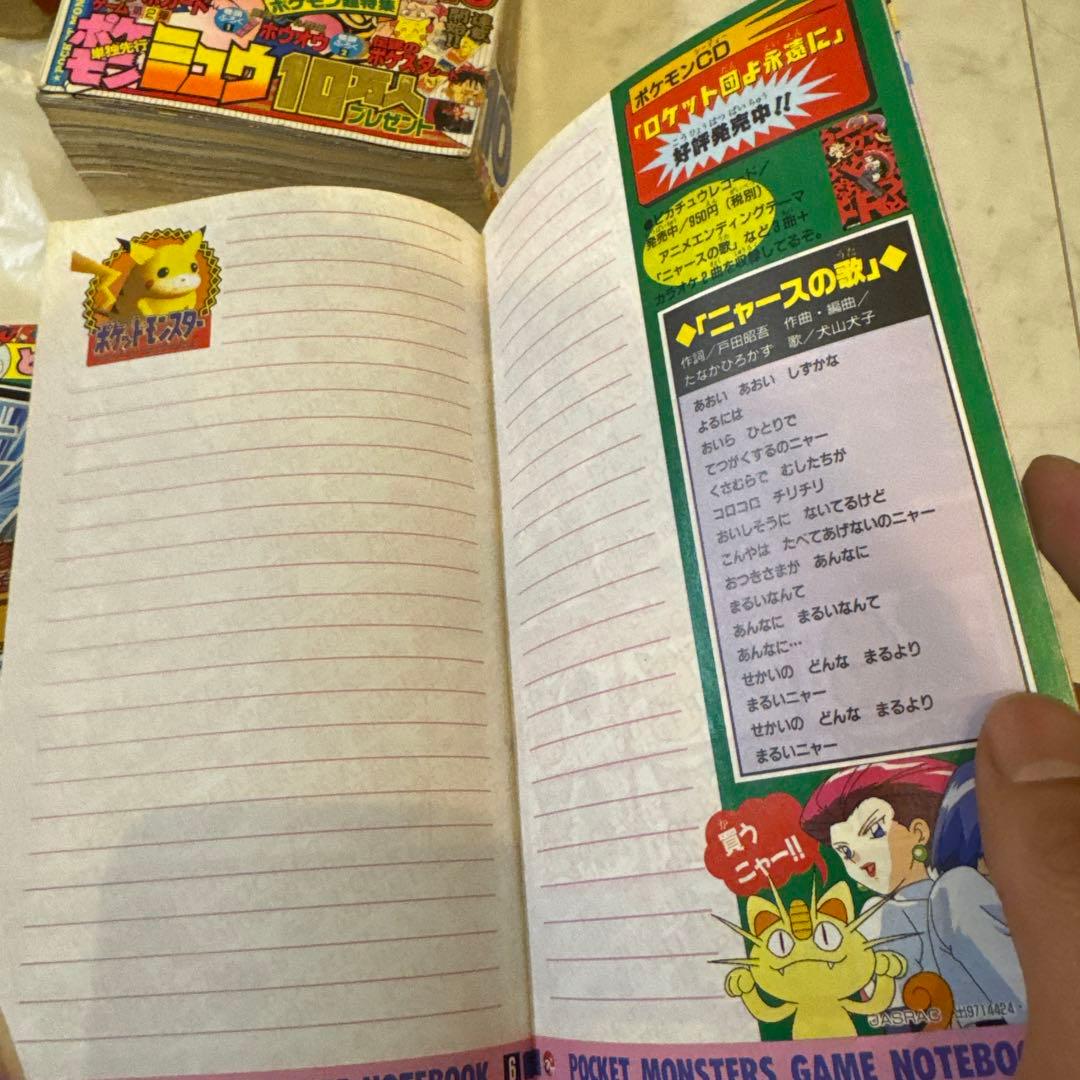 ポケモン超特集
ポケモン
単独先行
ミュウ
ホウオウ
10万人
プレゼント
ポケモンCD
「ロケット団よ永遠に」
好評発売中!!
●ピカチュウレコード/
発売中/950円(税別)
アニメエンディングテーマ
「ニャースの歌」など3曲+
カラオケ2曲を収録してるぞ。
◆「ニャースの歌」◆
作詞/戸田昭吾 作曲・編曲/
たなかひろかず 歌/犬山犬子
あおい あおい しずかな
よるには
おいら ひとりで
てつがくするのニャー
くさむらで むしたちが
コロコロ チリチリ
おいしそうに ないてるけど
こんやは たべてあげないのニャー
おつきさまが あんなに
まるいなんて
あんなに まるいなんて
あんなに…
せかいの どんな まるより
まるいニャー
せかいの どんな まるより
まるいニャー
買うニャー!!
JASRAC 出9714424-
ポケットモンスター
NOTEBOOK 6
POCKET MONSTERS GAME NOTEBOO